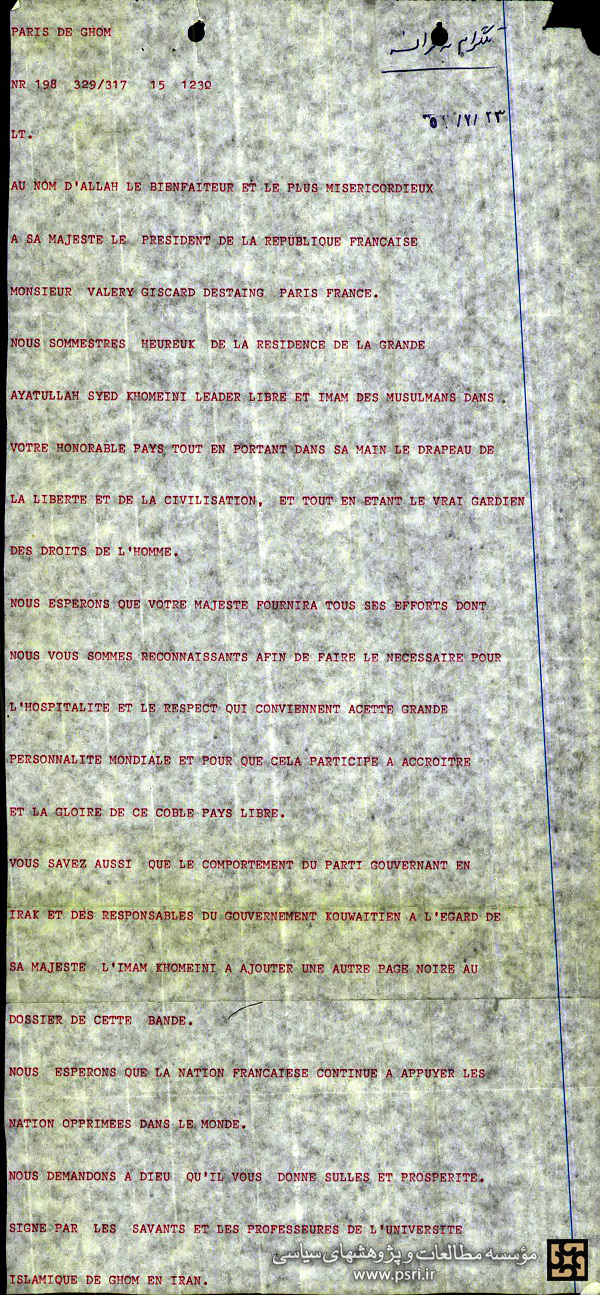 PARIS DE GHOM
تلگرام به فرانسه
NR 198 329/317 15 1230
۵۷/۷/۲۳
LT.
AU NOM D'ALLAH LE BIENFAITEUR ET LE PLUS MISERICORDIEUX
A SA MAJESTE LE PRESIDENT DE LA REPUBLIQUE FRANCAISE
MONSIEUR VALERY GISCARD DESTAING PARIS FRANCE.
NOUS SOMMESTRES HEUREUK DE LA RESIDENCE DE LA GRANDE
AYATULLAH SYED KHOMEINI LEADER LIBRE ET IMAM DES MUSULMANS DANS
VOTRE HONORABLE PAYS TOUT EN PORTANT DANS SA MAIN LE DRAPEAU DE
LA LIBERTE ET DE LA CIVILISATION, ET TOUT EN ETANT LE VRAI GARDIEN
DES DROITS DE L'HOMME.
NOUS ESPERONS QUE VOTRE MAJESTE FOURNIRA TOUS SES EFFORTS DONT
NOUS VOUS SOMMES RECONNAISSANTS AFIN DE FAIRE LE NECESSAIRE POUR
L'HOSPITALITE ET LE RESPECT QUI CONVIENNENT ACETTE GRANDE
PERSONNALITE MONDIALE ET POUR QUE CELA PARTICIPE A ACCROITRE
ET LA GLOIRE DE CE COBLE PAYS LIBRE.
VOUS SAVEZ AUSSI QUE LE COMPORTEMENT DU PARTI GOUVERNANT EN
IRAK ET DES RESPONSABLES DU GOUVERNEMENT KOUWAITIEN A L'EGARD DE
SA MAJESTE L'IMAM KHOMEINI A AJOUTER UNE AUTRE PAGE NOIRE AU
DOSSIER DE CETTE BANDE.
NOUS ESPERONS QUE LA NATION FRANCAIESE CONTINUE A APPUYER LES
NATION OPPRIMEES DANS LE MONDE.
NOUS DEMANDONS A DIEU QU'IL VOUS DONNE SULLES ET PROSPERITE.
SIGNE PAR LES SAVANTS ET LES PROFESSEURES DE L'UNIVERSITE
ISLAMIQUE DE GHOM EN IRAN.
مؤسسه مطالعات و پژوهشهای سیاسی
www.psri.ir